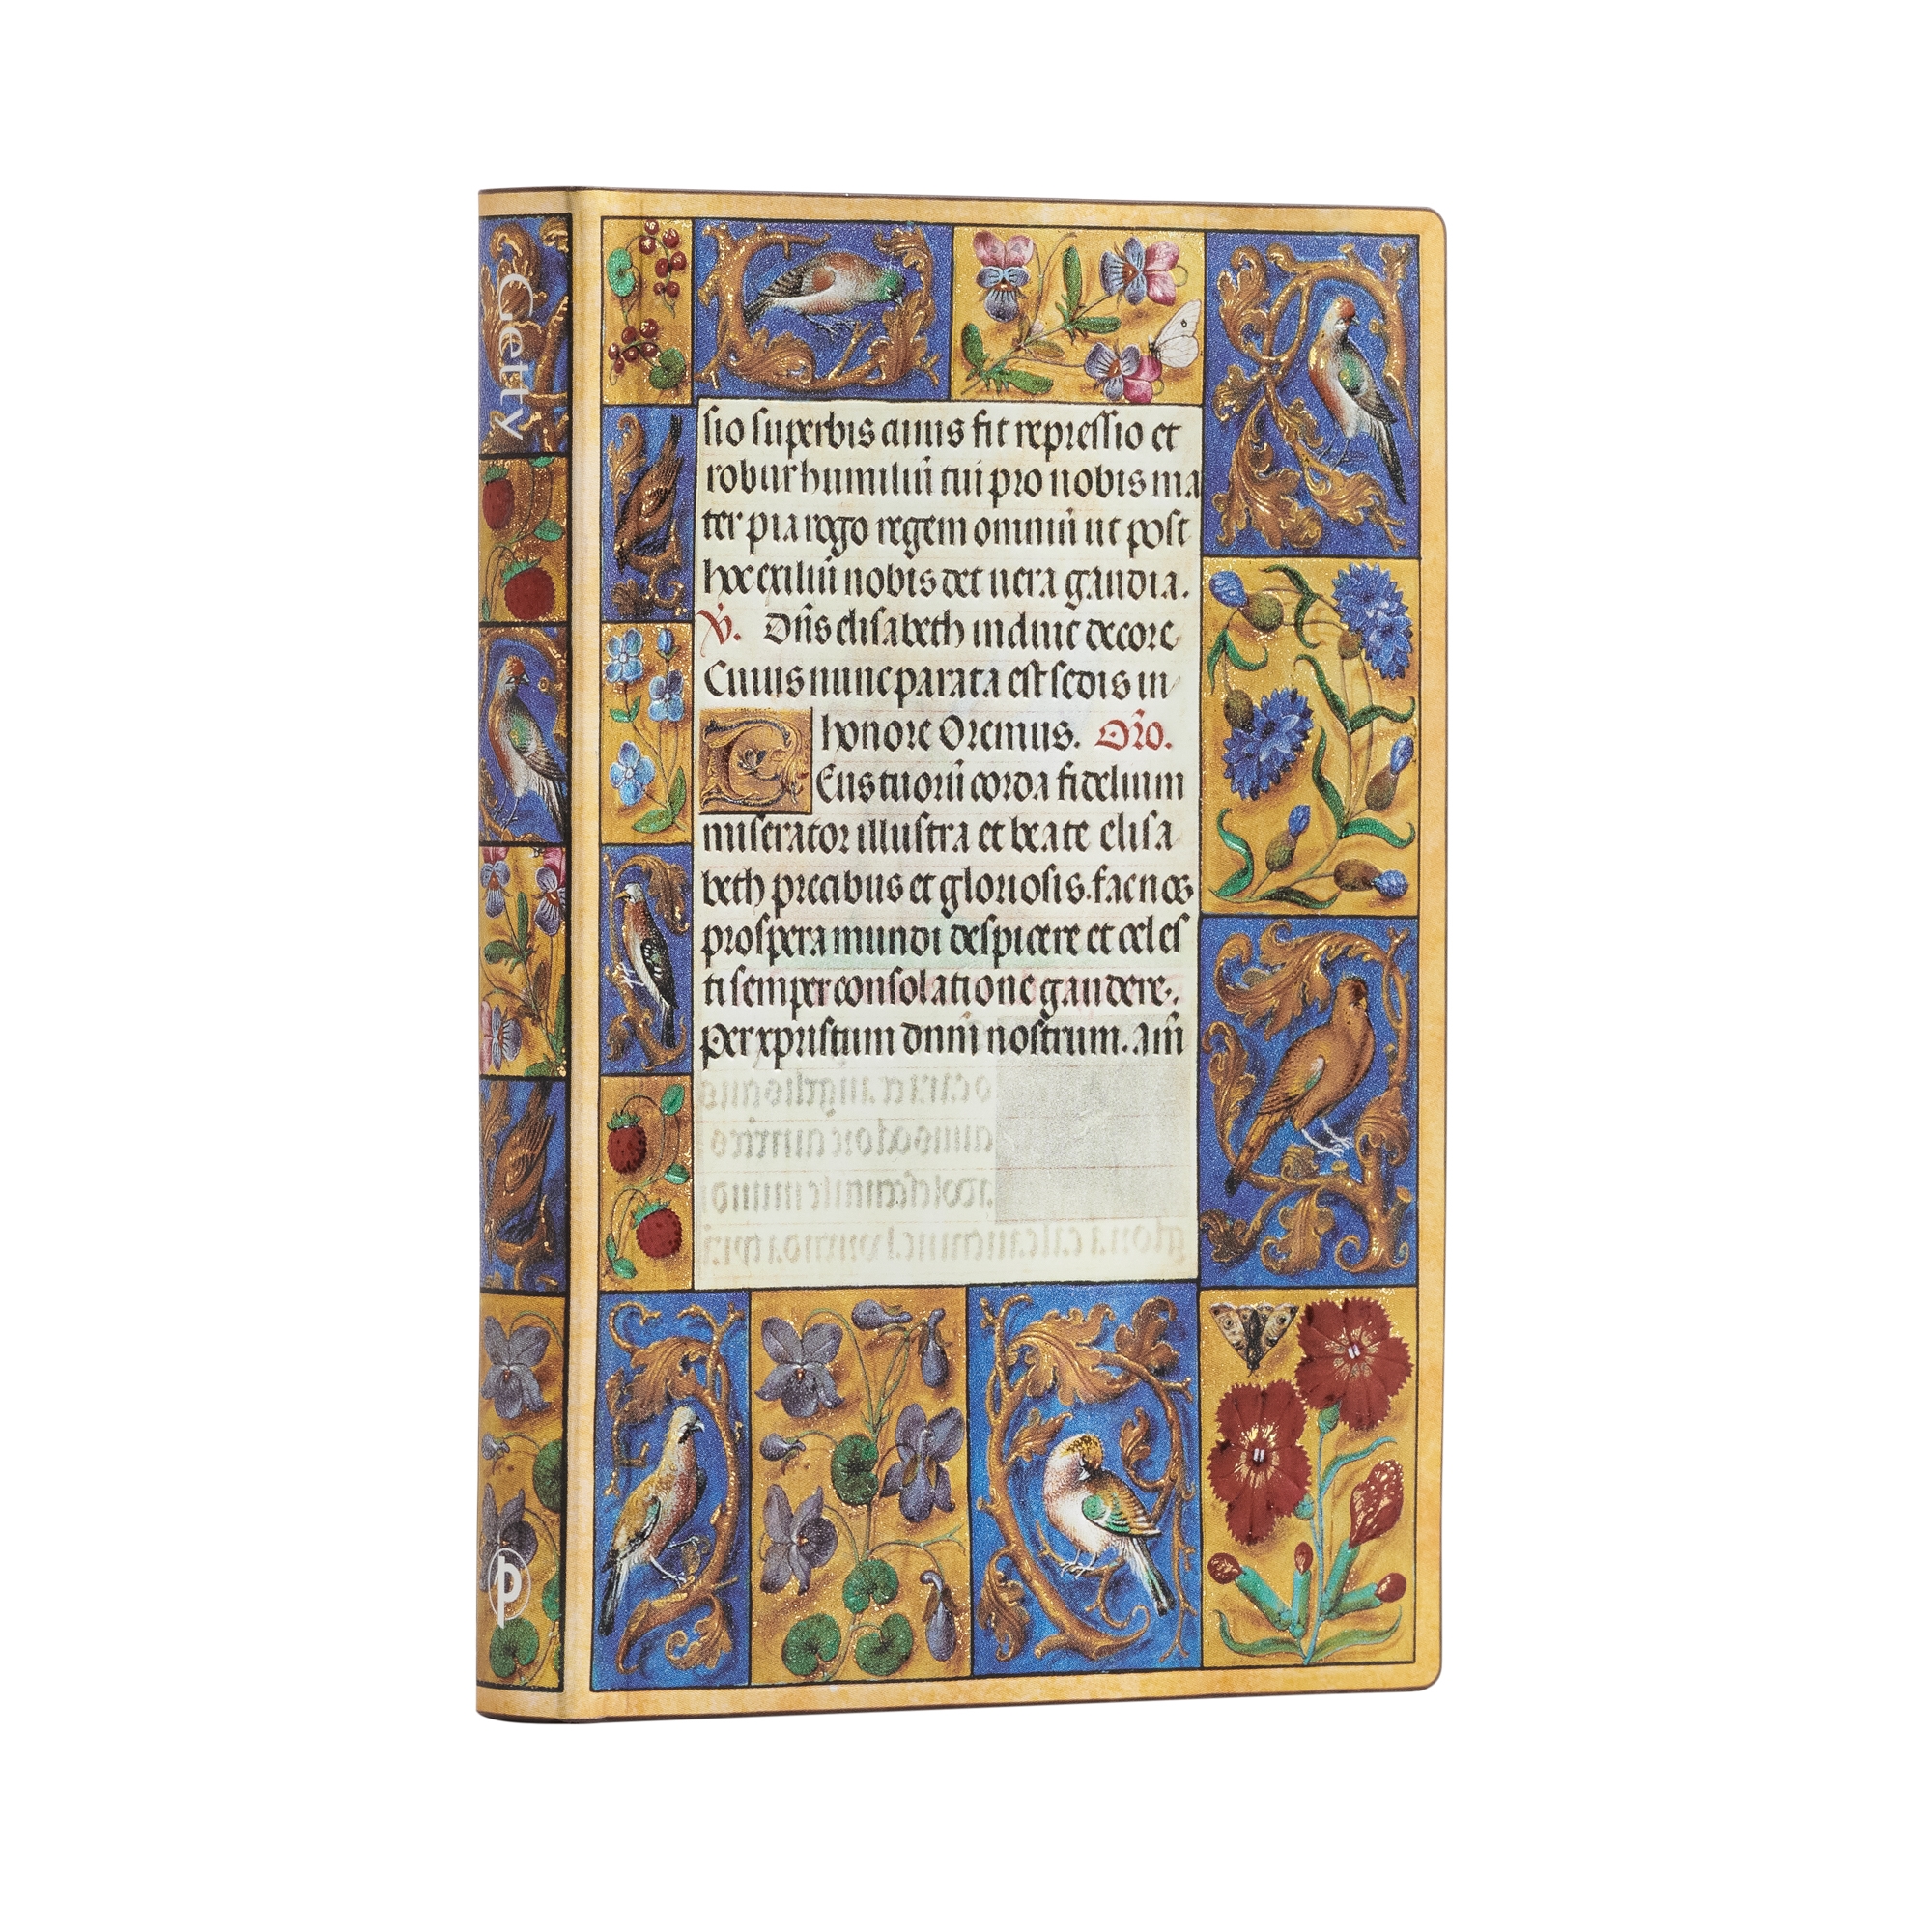 Getty
sio superbis cuius fit repressio et
robur humiliū tui pro nobis ma
ter pia rogo regem omniū ut post
hoc exiliū nobis det uera gaudia.
V̄. Dn̄s elisabeth induit decore
Cuius nunc parata est sedis in
honore Oremus. Or̄o.
Deus tuorū corda fidelium
miserator illustra et beate elisa
beth precibus et gloriosis. fac nos
prospera mundi despicere et celes
ti semper consolatione gaudere.
Per xpristum dnm̄ nostrum. am̄
p